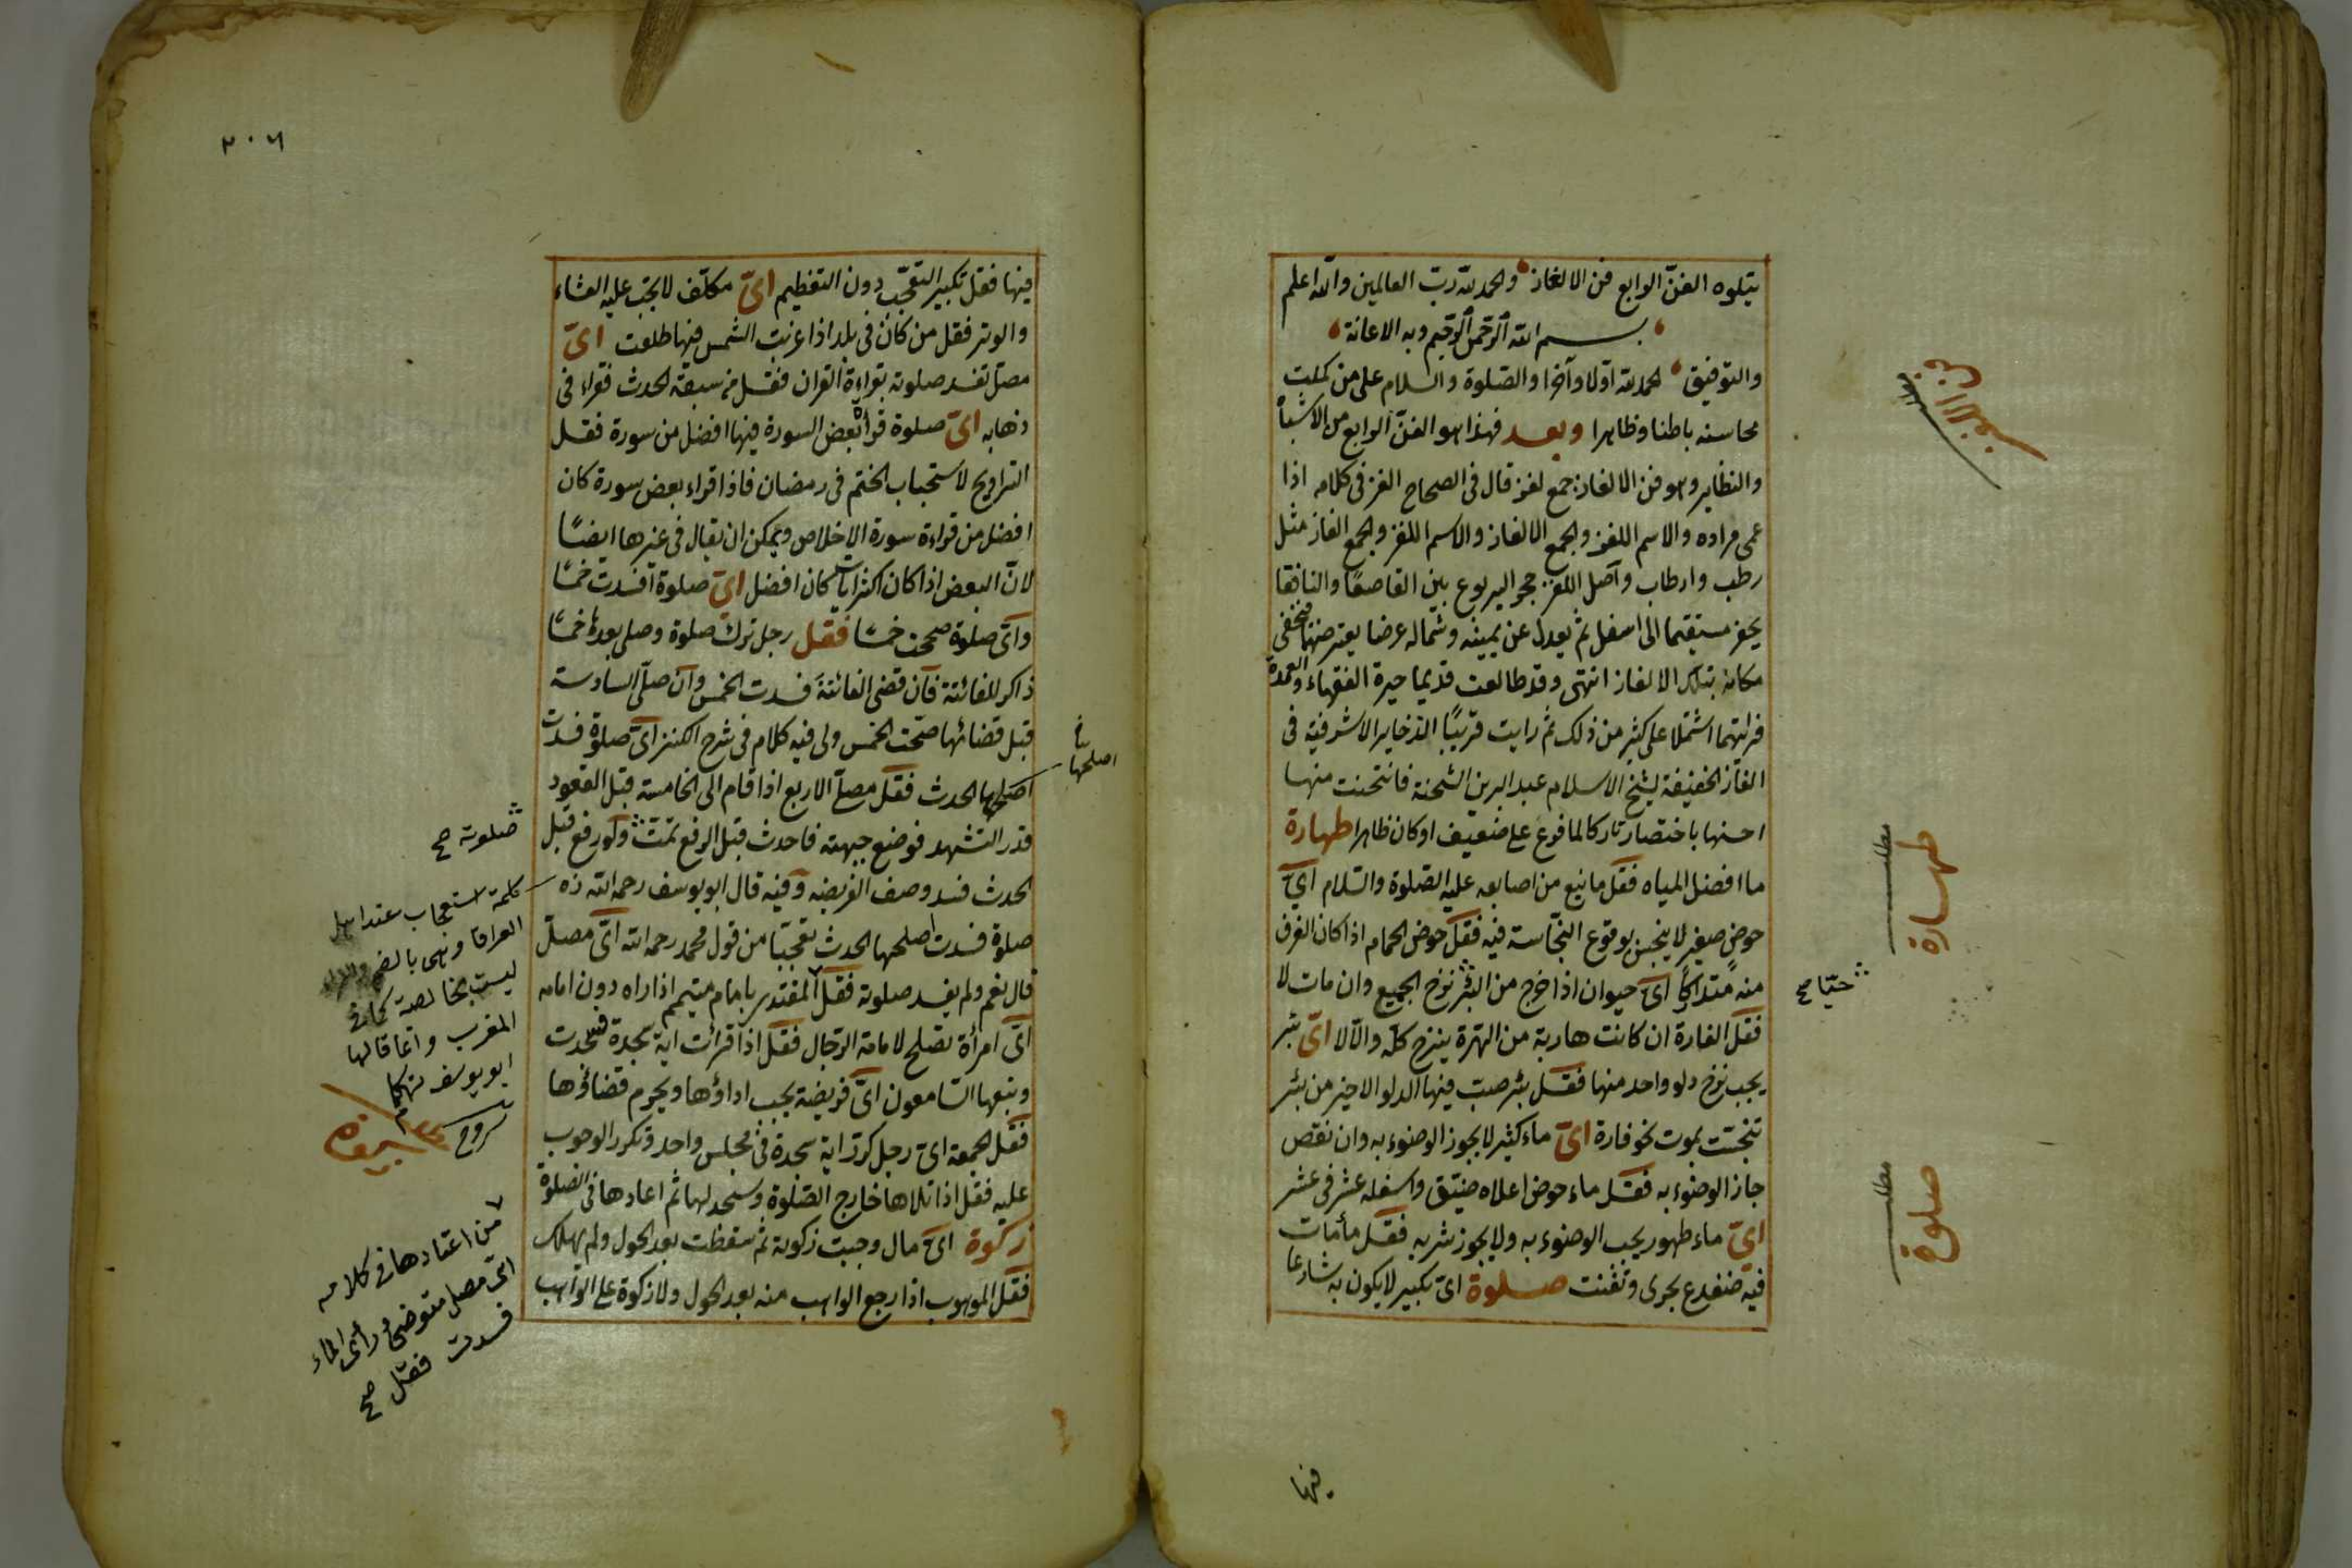 يتلوه الفنّ الرابع فن الالغاز والحمد لله ربّ العالمين والله اعلم
بسم الله الرحمن الرحيم وبه الاعانة
والتوفيق الحمد لله اوّلا وآخرا والصّلوة والسلام على من كملت
محاسنه باطنا وظاهرا وبعد فهذا هو الفنّ الرابع من الاشباه
والنظاير وهو فن الالغاز جمع لغز قال فى الصحاح الغز فى كلامه اذا
عمى مراده والاسم اللغز والجمع الالغاز والاسم اللغز والجمع الغاز مثل
رطب وارطاب واصل اللغز جحر اليربوع بين القاصعا والنافقا
يحفر مستقيما الى اسفل ثم يعدل عن يمينه وشماله عرضا يعترضها فيخفى
مكانه بتلك الالغاز انتهى وقد طالعت قديما حيرة الفقهاء والعمدة
فرايتهما اشتملا على كثير من ذلك ثم رايت قريبًا الذخاير الاشرفية فى
الغاز الحنفية لشيخ الاسلام عبد البر بن الشحنة فانتخبت منها
احسنها باختصار تاركا لما فرع على ضعيف او كان ظاهرا طهارة
ما افضل المياه فقل ما نبع من اصابعه عليه الصّلوة والسّلام اىّ
حوض صغير لا ينجس بوقوع النجّاسة فيه فقل حوض الحمام اذا كان الغرف
منه متداركا اىّ حيوان اذا خرج من البئر نزح الجميع وان مات لا
فقل الفارة ان كانت هاربة من الهرّة ينزح كلّه والّا لا اىّ بئر
يجب نزح دلو واحد منها فقل بئر صبت فيها الدلو الاخير من بئر
تنجّست بموت نحو فارة اىّ ماء كثير لا يجوز الوضوء به وان نقص
جاز الوضوء به فقل ماء حوض اعلاه ضيّق واسفله عشر فى عشر
اىّ ماء طهور يجب الوضوء به ولا يجوز شربه فقل ماء مات
فيه ضفدع بحرى وتفتت صلوة اىّ تكبير لا يكون به شارعا
فن الالغاز
مطلب
طهارة
حيّا صح
مطلب
صلوة
فيها
٣٠٦
فيها فقل تكبير التعجّب دون التعظيم اىّ مكلّف لا يجب عليه العشاء
والوتر فقل من كان فى بلد اذا غربت الشمس فيها طلعت اىّ
مصلّ تفسد صلوته بقراءة القران فقل من سبقه الحدث فقراء فى
ذهابه اىّ صلوة قراة بعض السورة فيها افضل من سورة فقل
التراويح لاستحباب الختم فى رمضان فاذا قراء بعض سورة كان
افضل من قراءة سورة الاخلاص ويمكن ان يقال فى غيرها ايضًا
لانّ البعض اذا كان اكثر ايات كان افضل اىّ صلوة افسدت خمسًا
واىّ صلوة صححت خمسًا فقل رجل ترك صلوة وصلى بعدها خمسًا
ذاكرا للفائتة فان قضى الفائتة فسدت الخمس وان صلّى السادسة
قبل قضائها صحّت الخمس ولى فيه كلام فى شرح الكنز اىّ صلوة فسدت
اصلحها الحدث فقل مصلّ الاربع اذا قام الى الخامسة قبل القعود
قدر التشهد فوضع جبهته فاحدث قبل الرفع تمّت ولو رفع قبل
الحدث فسد وصف الفريضة وفيه قال ابو يوسف رحمه الله زه
صلوة فسدت اصلحها الحدث تعجّبًا من قول محمد رحمه الله اىّ مصلّ
قال نعم ولم يفسد صلوته فقل المقتدى بامام متيمم اذا راه دون امامه
اىّ امرأة تصلح لامامة الرّجال فقل اذا قرائت اية سجدة فسجدت
وتبعها السّامعون اىّ فريضة يجب اداؤها ويحرم قضاؤها
فقل الجمعة اىّ رجل كرّر اية سجدة فى مجلس واحد وتكرر الوجوب
عليه فقل اذا تلاها خارج الصّلوة وسجد لها ثم اعادها فى الصّلوة
زكوة اىّ مال وجبت زكوته ثم سقطت بعد الحول ولم يهلك
فقل الموهوب اذا رجع الواهب منه بعد الحول ولا زكوة على الواهب
اصلحها
صلوته صح
كلمة استعجاب عند اهل
العراق وهى بالضم
ليست بخالصة
المغرب وانما قالها
ابو يوسف تهكما
من اعتادها فى كلامه
اىّ مصل متوضئ رأى الماء
فسدت فقل صح